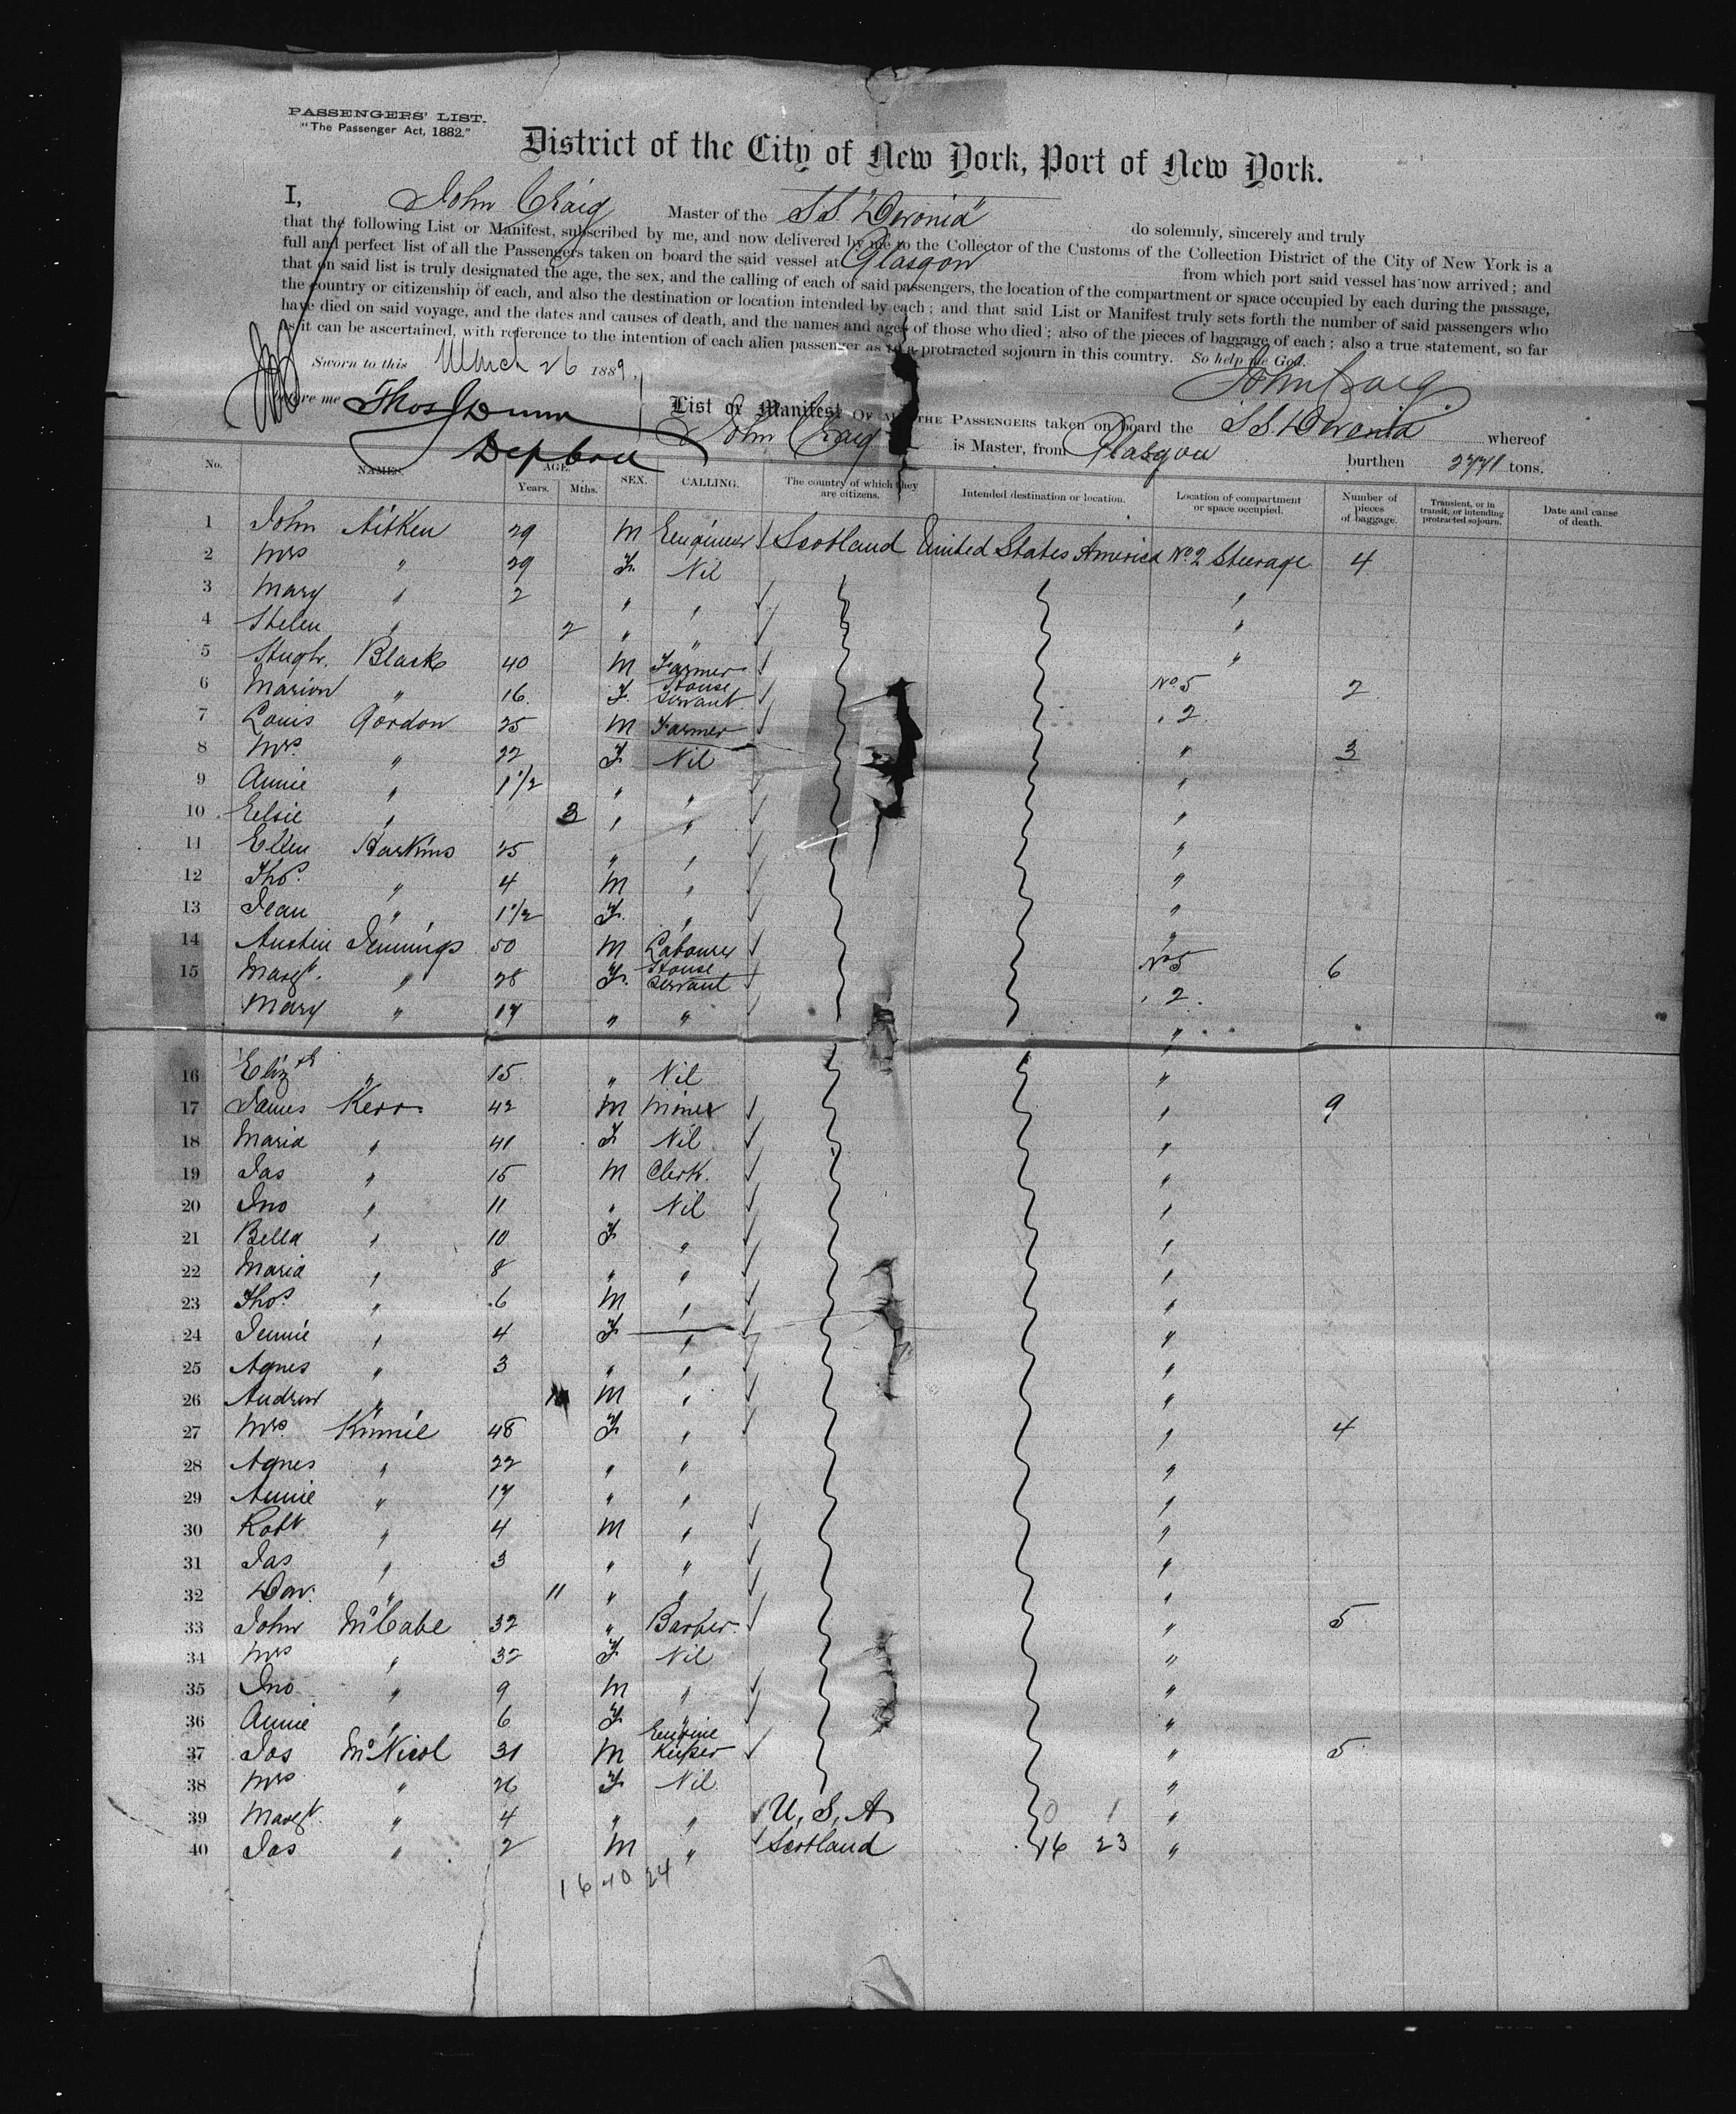 PASSENGERS' LIST.
"The Passenger Act, 1882."
District of the City of New York, Port of New York.
I, John Craig Master of the S.S. "Devonia" do solemnly, sincerely and truly
that the following List or Manifest, subscribed by me, and now delivered by me to the Collector of the Customs of the Collection District of the City of New York is a
full and perfect list of all the Passengers taken on board the said vessel at Glasgow from which port said vessel has now arrived; and
that on said list is truly designated the age, the sex, and the calling of each of said passengers, the location of the compartment or space occupied by each during the passage,
the country or citizenship of each, and also the destination or location intended by each; and that said List or Manifest truly sets forth the number of said passengers who
have died on said voyage, and the dates and causes of death, and the names and ages of those who died; also of the pieces of baggage of each; also a true statement, so far
as it can be ascertained, with reference to the intention of each alien passenger as to a protracted sojourn in this country. So help me God.
Sworn to this March 26 1889. John Craig
before me Thos J Dunn
List or Manifest OF ALL THE PASSENGERS taken on board the S.S. Devonia whereof
John Craig is Master, from Glasgow burthen 2771 tons.
No. NAMES. AGE. Years. Mths. SEX. CALLING. The country of which they are citizens. Intended destination or location. Location of compartment or space occupied. Number of pieces of baggage. Transient, or in transit, or intending protracted sojourn. Date and cause of death.
1 John Aitken 29 M Engineer Scotland United States America No. 2 Steerage 4
2 Mrs " 29 F. Nil "
3 Mary " 2 " " "
4 Helen " 2 " " "
5 Hugh. Black 40 M Farmer No. 5 2
6 Marion " 16. F. House Servant " 2.
7 Louis Gordon 25 M Farmer " 3
8 Mrs. " 22 F. Nil "
9 Annie " 1 1/2 " " "
10 Eelsie " 3 " " "
11 Ellen Harkins 25 " " "
12 Thos. " 4 M " "
13 Jean " 1 1/2 F. " "
14 Austin Jennings 50 M Labourer No. 5 6
15 Margt. " 28 F. House Servant " 2.
Mary " 17 " " "
16 Elizth " 15 " Nil "
17 James Kerr 42 M Miner " 9
18 Maria " 41 F Nil "
19 Jas " 15 M Clerk. "
20 Jno " 11 " Nil "
21 Bella " 10 F " "
22 Maria " 8 " " "
23 Thos. " 6 M " "
24 Jennie " 4 F " "
25 Agnes " 3 " " "
26 Andrew " M " "
27 Mrs. Kinnie 48 F " " 4
28 Agnes " 22 " " "
29 Annie " 17 " " "
30 Robt. " 4 M " "
31 Jas " 3 " " "
32 Dav. " 11 " " "
33 John McCabe 32 " Barber. " 5
34 Mrs " 32 F Nil "
35 Jno " 9 M " "
36 Annie " 6 F " "
37 Jas McNicol 31 M Engine Keeper " 5
38 Mrs " 26 F Nil "
39 Margt. " 4 " " U. S. A "
40 Jas " 2 M " Scotland 16 23 "
16 40 24